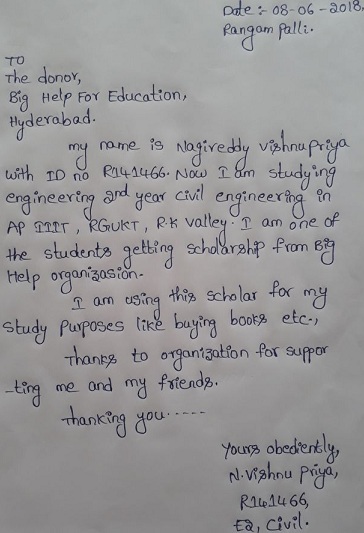 Date :- 08-06-2018,
Rangam palli.
TO
The donor,
Big Help For Education,
Hyderabad.
my name is Nagireddy vishnupriya
with ID no R141466. Now I am studying
engineering 2nd year civil engineering in
AP IIIT, RGUKT, R.K valley. I am one of
the students getting scholarship from Big
Help organizasion.
I am using this scholar for my
study purposes like buying books etc.,
Thanks to organization for suppor
-ting me and my friends.
Thanking you.....
Yours obediently,
N.Vishnu priya,
R141466,
E2, Civil.